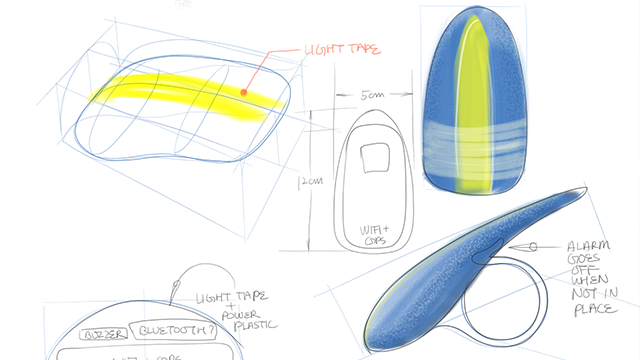 LIGHT TAPE
5cm
12cm
WIFI +
GPS
ALARM
GOES
OFF
WHEN
NOT IN
PLACE
LIGHT TAPE
+
POWER
PLASTIC
BUZZER
BLUETOOTH?
WIFI + GPS